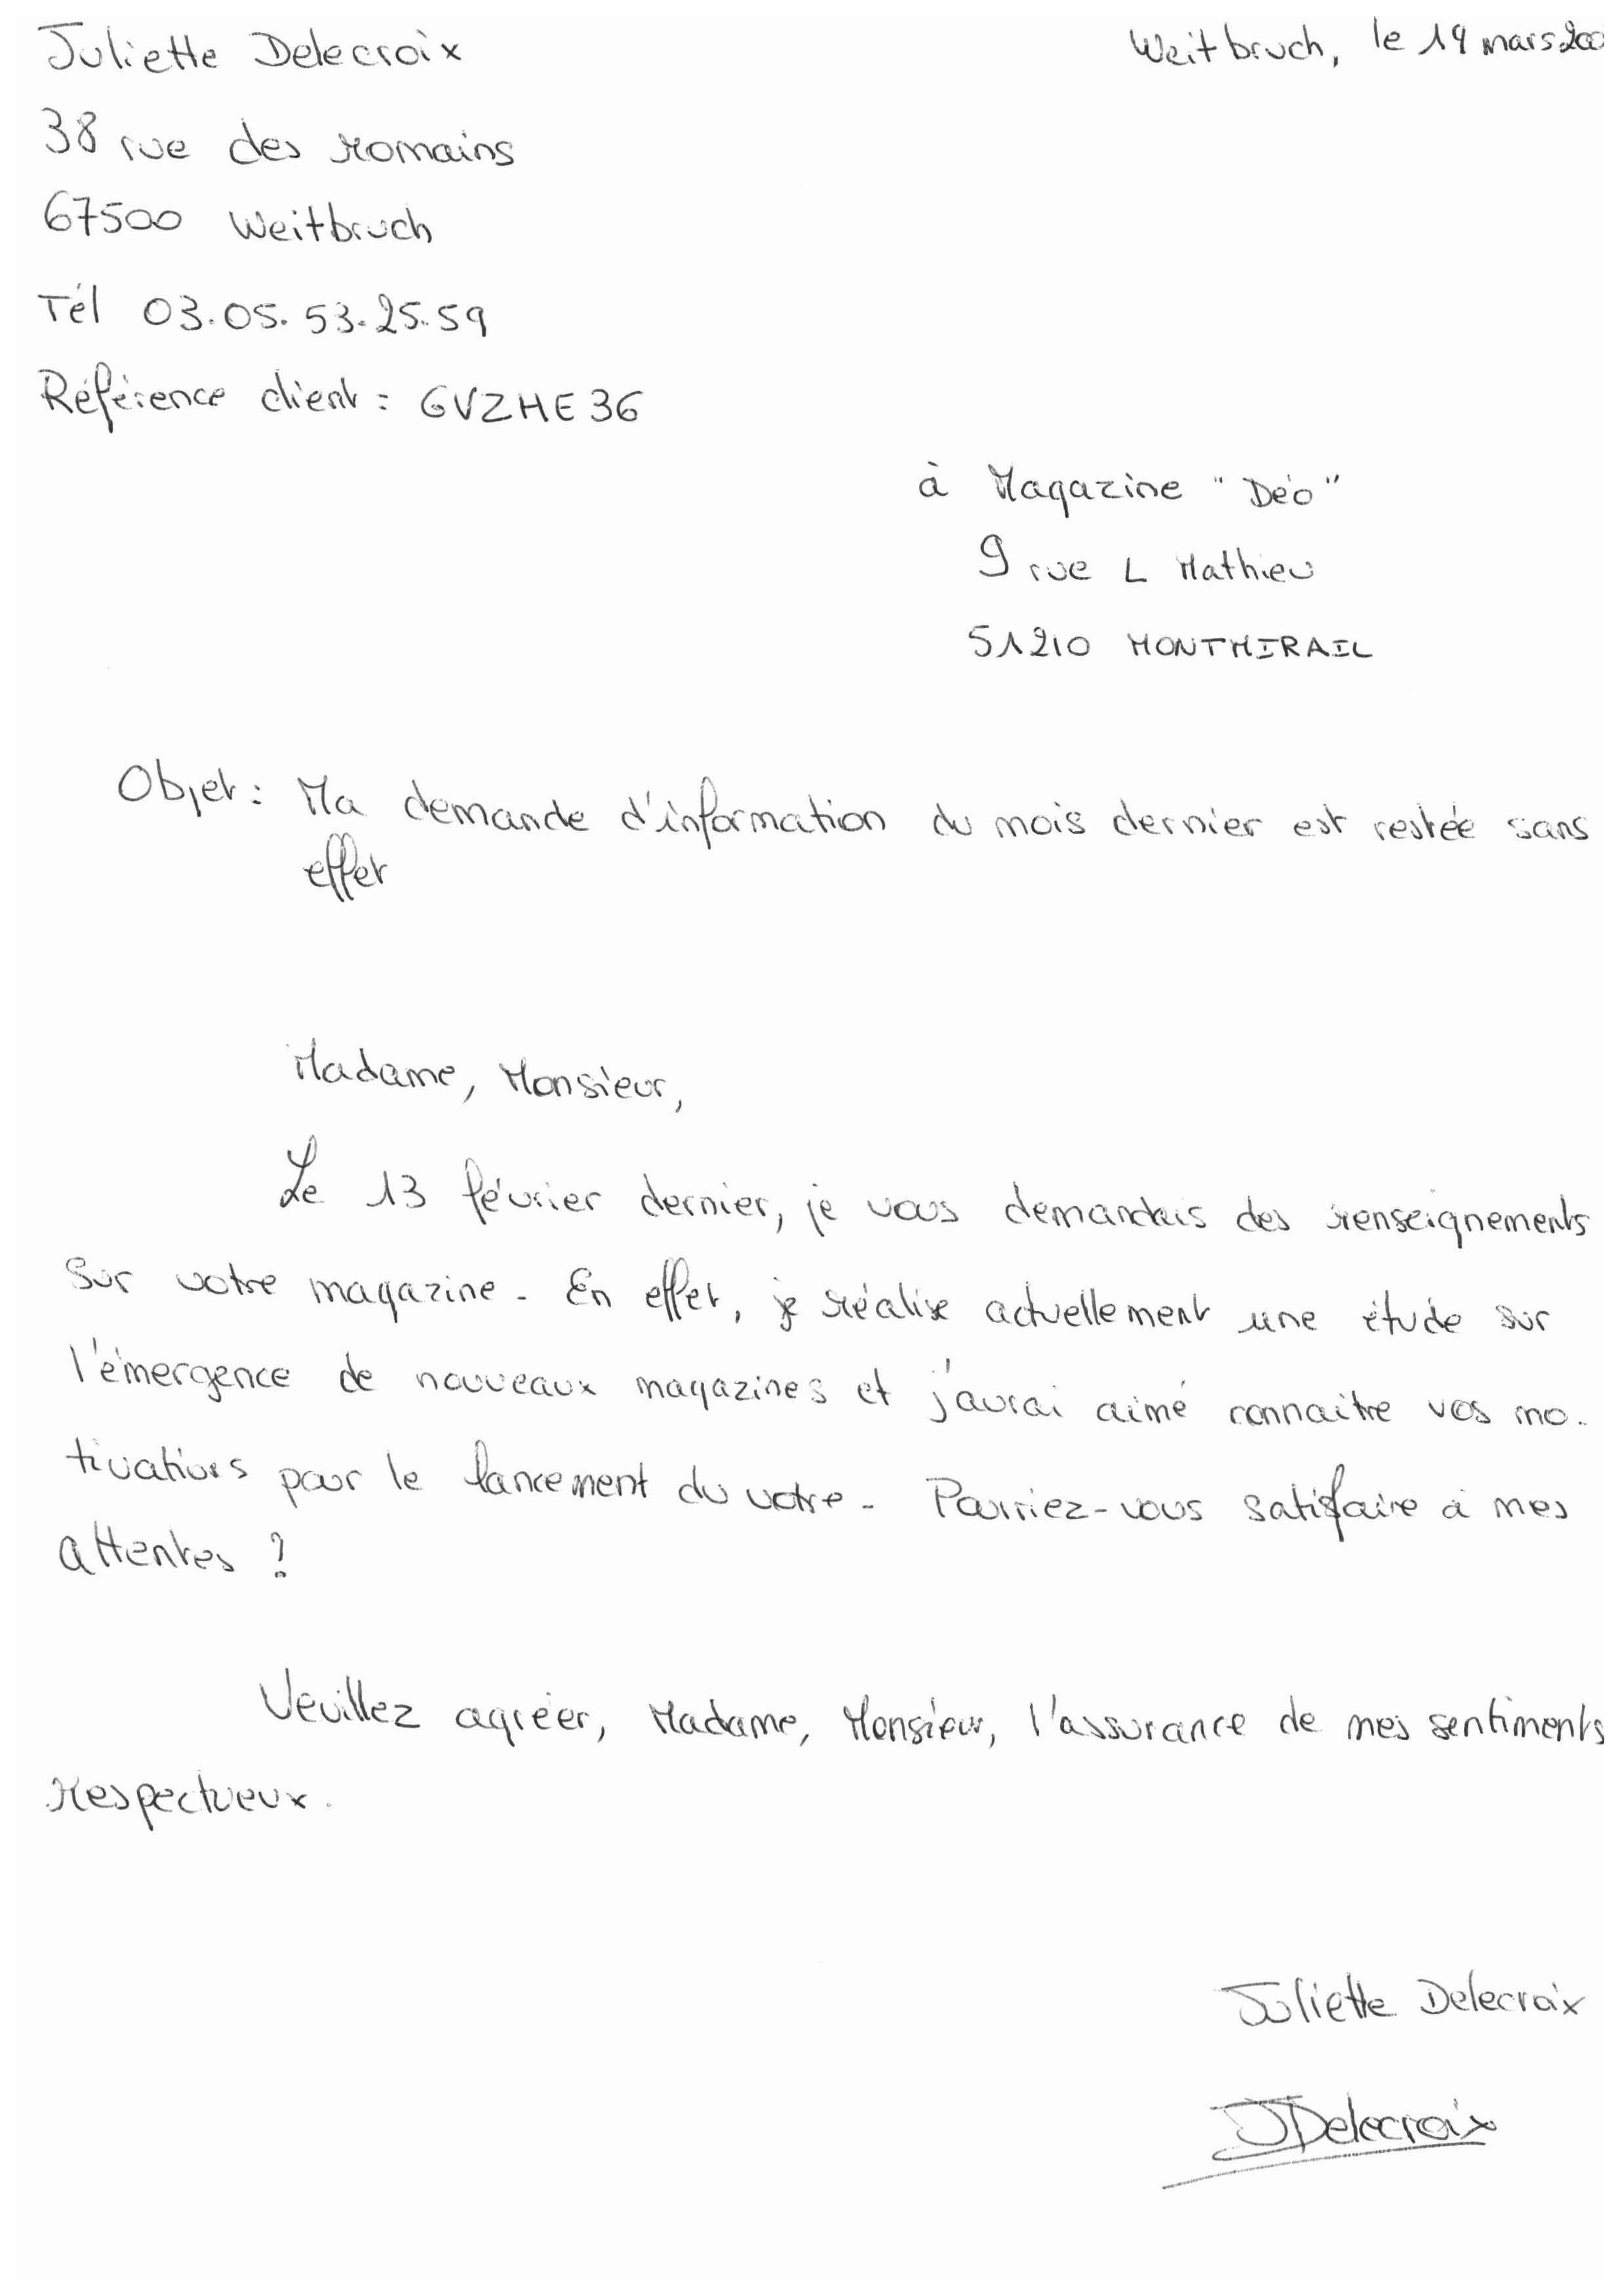 Juliette Delecroix
Weitbruch, le 19 mars 200
38 rue des romains
67500 Weitbruch
Tél 03.05.53.25.59
Référence client : GVZHE36
à Magazine "Déo"
9 rue L Mathieu
51210 MONTMIRAIL
Objet : Ma demande d'information du mois dernier est restée sans
effet
Madame, Monsieur,
Le 13 février dernier, je vous demandais des renseignements
sur votre magazine. En effet, je réalise actuellement une étude sur
l'émergence de nouveaux magazines et j'aurai aimé connaitre vos mo-
tivations pour le lancement du votre. Pourriez-vous satisfaire à mes
attentes ?
Veuillez agréer, Madame, Monsieur, l'assurance de mes sentiments
respectueux.
Juliette Delecroix
JDelecroix